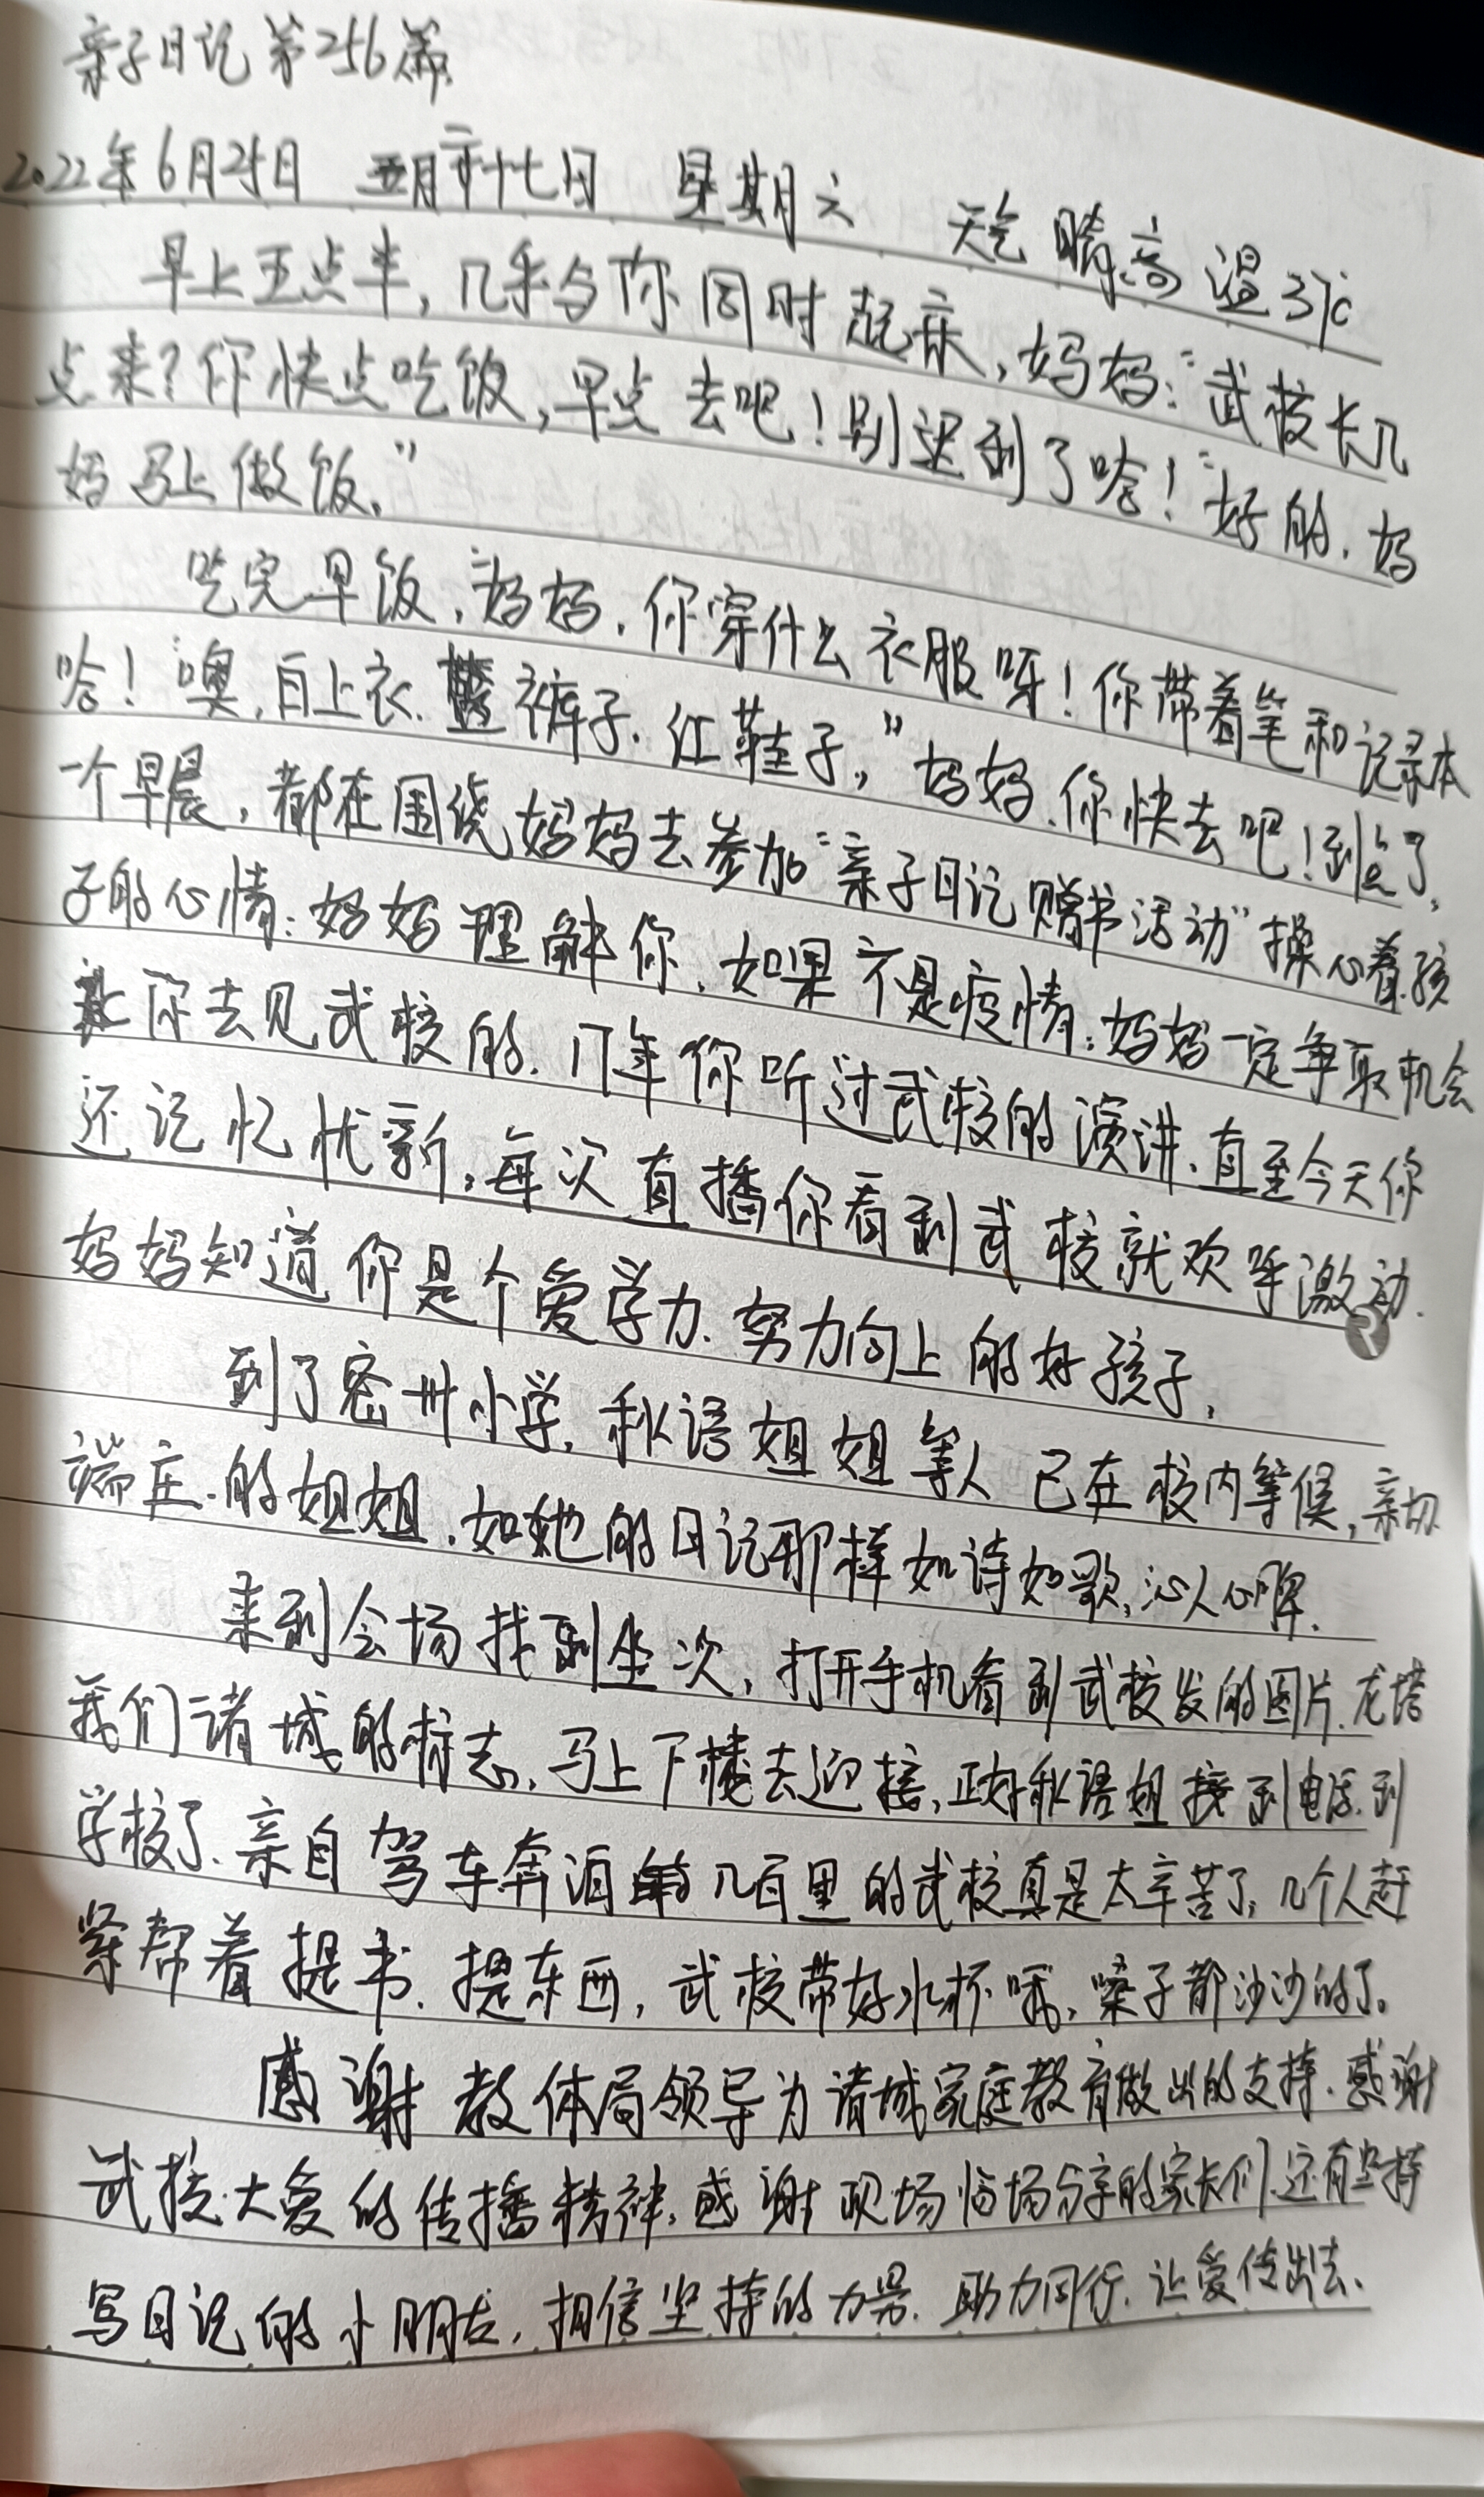 亲子日记第256篇
2022年6月25日 五月二十七日 星期六 天气晴高温37℃
早上五点半,几乎与你同时起床,妈妈:“武校长几
点来?你快点吃饭,早点去吧!别迟到了哈!”“好的,妈
妈马上做饭.”
吃完早饭,“妈妈,你穿什么衣服呀!你带着笔和记录本
哈!噢,白上衣.裤子.红鞋子,”妈妈.你快去吧!到点了,
一个早晨,都在围绕妈妈去参加“亲子日记赠书活动”操心着.孩
子的心情:妈妈理解你.如果不是疫情:妈妈一定争取机会
让你去见武校的.17年你听过武校的演讲.直至今天你
还记忆忧新,每次直播你看到武校就欢呼激动.
妈妈知道你是个爱学力.努力向上的好孩子,
到了密州小学.秋语姐姐等人已在校内等候,亲切
端庄.的姐姐.如她的日记那样如诗如歌,沁人心脾.
来到会场找到坐次,打开手机看到武校发的图片.龙塔
我们诸城的标志,马上下楼去迎接,正好秋语姐接到电话.到
学校了.亲自驾车奔泊几百里的武校真是太辛苦了,几个人赶
紧帮着提书.提东西,武校带好水杯哦,嗓子都沙沙的了。
感谢教体局领导为诸城家庭教育做出的支持.感谢
武校大爱的传播精神,感谢现场临场分享的家长们.还有坚持
写日记的小朋友,相信坚持的力量.助力同行.让爱传出去.